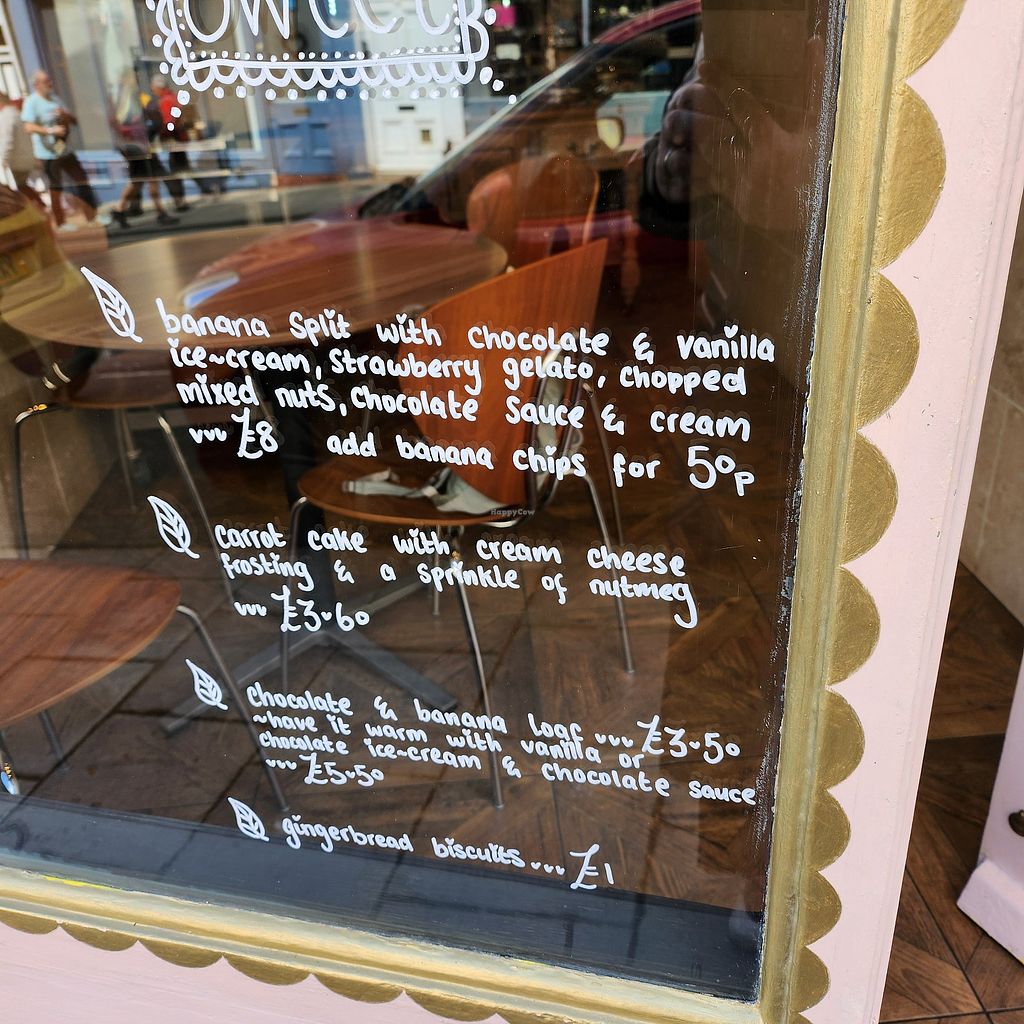 banana split with chocolate & vanilla
ice~cream, strawberry gelato, chopped
mixed nuts, chocolate sauce & cream
... £8 add banana chips for 50p
HappyCow
carrot cake with cream cheese
frosting & a sprinkle of nutmeg
... £3.60
chocolate & banana loaf ... £3.50
~have it warm with vanilla or
chocolate ice~cream & chocolate sauce
... £5.50
gingerbread biscuits ... £1